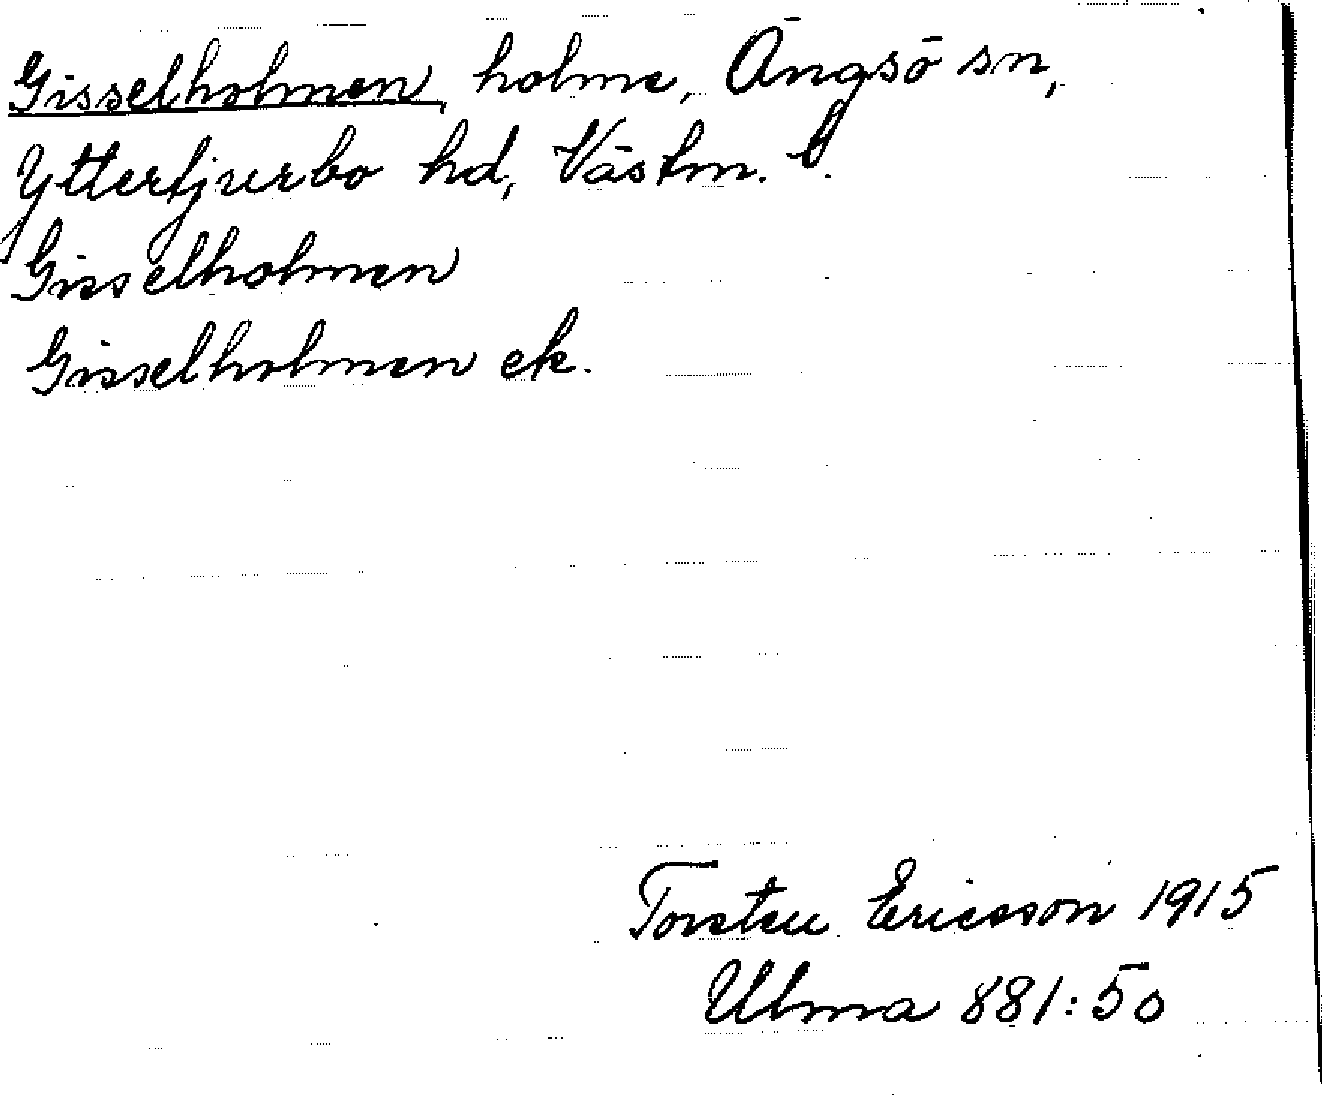 Gisselholmen, holme, Ängsö sn,
Yttertjurbo hd, Västm. l.
Gisselholmen
Gisselholmen ek.
Torsten Ericsson 1915
Ulma 881:50